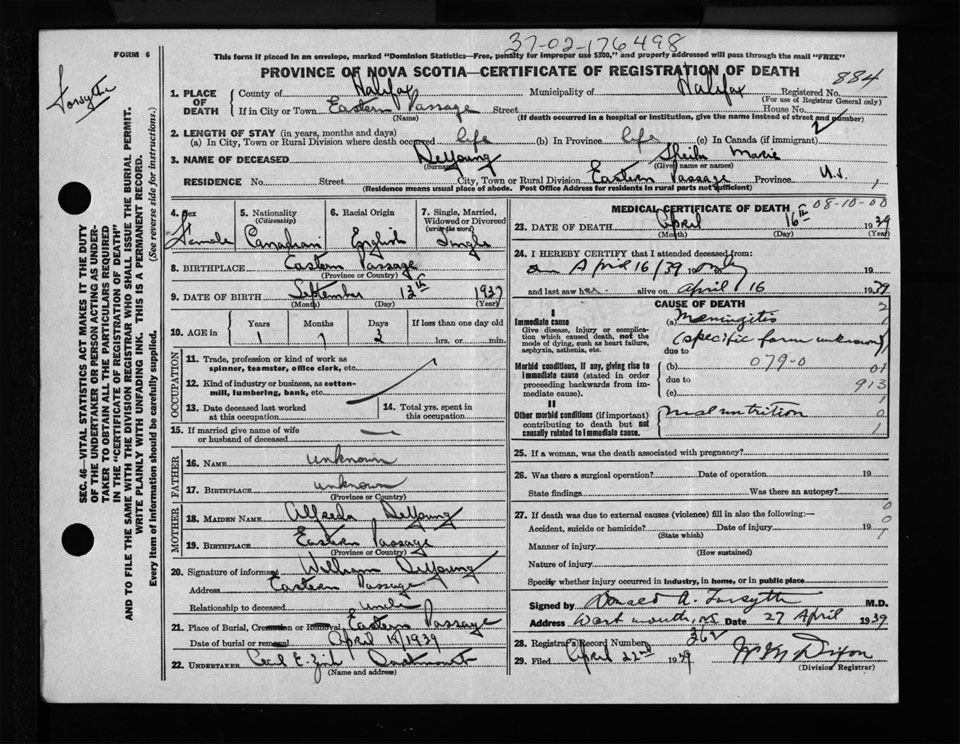 37-02-176498
FORM 6
This form if placed in an envelope, marked "Dominion Statistics—Free, penalty for improper use $300," and properly addressed will pass through the mail "FREE"
PROVINCE OF NOVA SCOTIA—CERTIFICATE OF REGISTRATION OF DEATH
884
Forsythe
1. PLACE OF DEATH
County of Halifax Municipality of Halifax Registered No.
(For use of Registrar General only)
If in City or Town Eastern Passage Street House No.
(Name) (If death occurred in a hospital or institution, give the name instead of street and number)
2. LENGTH OF STAY (in years, months and days)
(a) In City, Town or Rural Division where death occurred life (b) In Province life (c) In Canada (if immigrant)
3. NAME OF DECEASED DeYoung Sheila Marie
(Surname) (Given name or names)
RESIDENCE No. Street City, Town or Rural Division Eastern Passage Province N.S.
(Residence means usual place of abode. Post Office Address for residents in rural parts not sufficient)
4. Sex Female
5. Nationality (Citizenship) Canadian
6. Racial Origin English
7. Single, Married, Widowed or Divorced (write the word) Single
8. BIRTHPLACE Eastern Passage
(Province or Country)
9. DATE OF BIRTH September 13th 1937
(Month) (Day) (Year)
10. AGE in Years Months Days If less than one day old
1 7 3 hrs. or min.
OCCUPATION
11. Trade, profession or kind of work as spinner, teamster, office clerk, etc.
12. Kind of industry or business, as cotton-mill, lumbering, bank, etc.
13. Date deceased last worked at this occupation
14. Total yrs. spent in this occupation
15. If married give name of wife or husband of deceased
FATHER
16. NAME unknown
17. BIRTHPLACE unknown
(Province or Country)
MOTHER
18. MAIDEN NAME Alfreda DeYoung
19. BIRTHPLACE Eastern Passage
(Province or Country)
20. Signature of informant William DeYoung
Address Eastern Passage
Relationship to deceased uncle
21. Place of Burial, Cremation or Removal Eastern Passage
Date of burial or removal April 18 1939
22. UNDERTAKER Cecil E. Zink Dartmouth
(Name and address)
MEDICAL CERTIFICATE OF DEATH
08-10-00
23. DATE OF DEATH April 16th 1939
(Month) (Day) (Year)
24. I HEREBY CERTIFY that I attended deceased from:
on April 16/39 only 19
and last saw her alive on April 16 1939
CAUSE OF DEATH
I
Immediate cause
Give disease, injury or complication which caused death, not the mode of dying, such as heart failure, asphyxia, asthenia, etc.
(a) Meningitis
(specific form unknown)
due to
Morbid conditions, if any, giving rise to immediate cause (stated in order proceeding backwards from immediate cause).
(b) 079-0
due to
913
(c)
II
Other morbid conditions (if important) contributing to death but not causally related to immediate cause.
malnutrition
25. If a woman, was the death associated with pregnancy?
26. Was there a surgical operation? Date of operation 19
State findings Was there an autopsy?
27. If death was due to external causes (violence) fill in also the following:—
Accident, suicide or homicide? Date of injury 19
(State which)
Manner of injury
(How sustained)
Nature of injury
Specify whether injury occurred in industry, in home, or in public place
Signed by Donald A. Forsythe M.D.
Address Dartmouth, NS Date 27 April 1939
28. Registrar's Record Number 362
29. Filed April 22nd 1939 Dixon
(Division Registrar)
SEC. 46—VITAL STATISTICS ACT MAKES IT THE DUTY
OF THE UNDERTAKER OR PERSON ACTING AS UNDERTAKER TO OBTAIN ALL THE PARTICULARS REQUIRED
IN THE "CERTIFICATE OF REGISTRATION OF DEATH"
AND TO FILE THE SAME WITH THE DIVISION REGISTRAR WHO SHALL ISSUE THE BURIAL PERMIT.
WRITE PLAINLY WITH UNFADING INK. THIS IS A PERMANENT RECORD.
Every item of information should be carefully supplied. (See reverse side for instructions.)